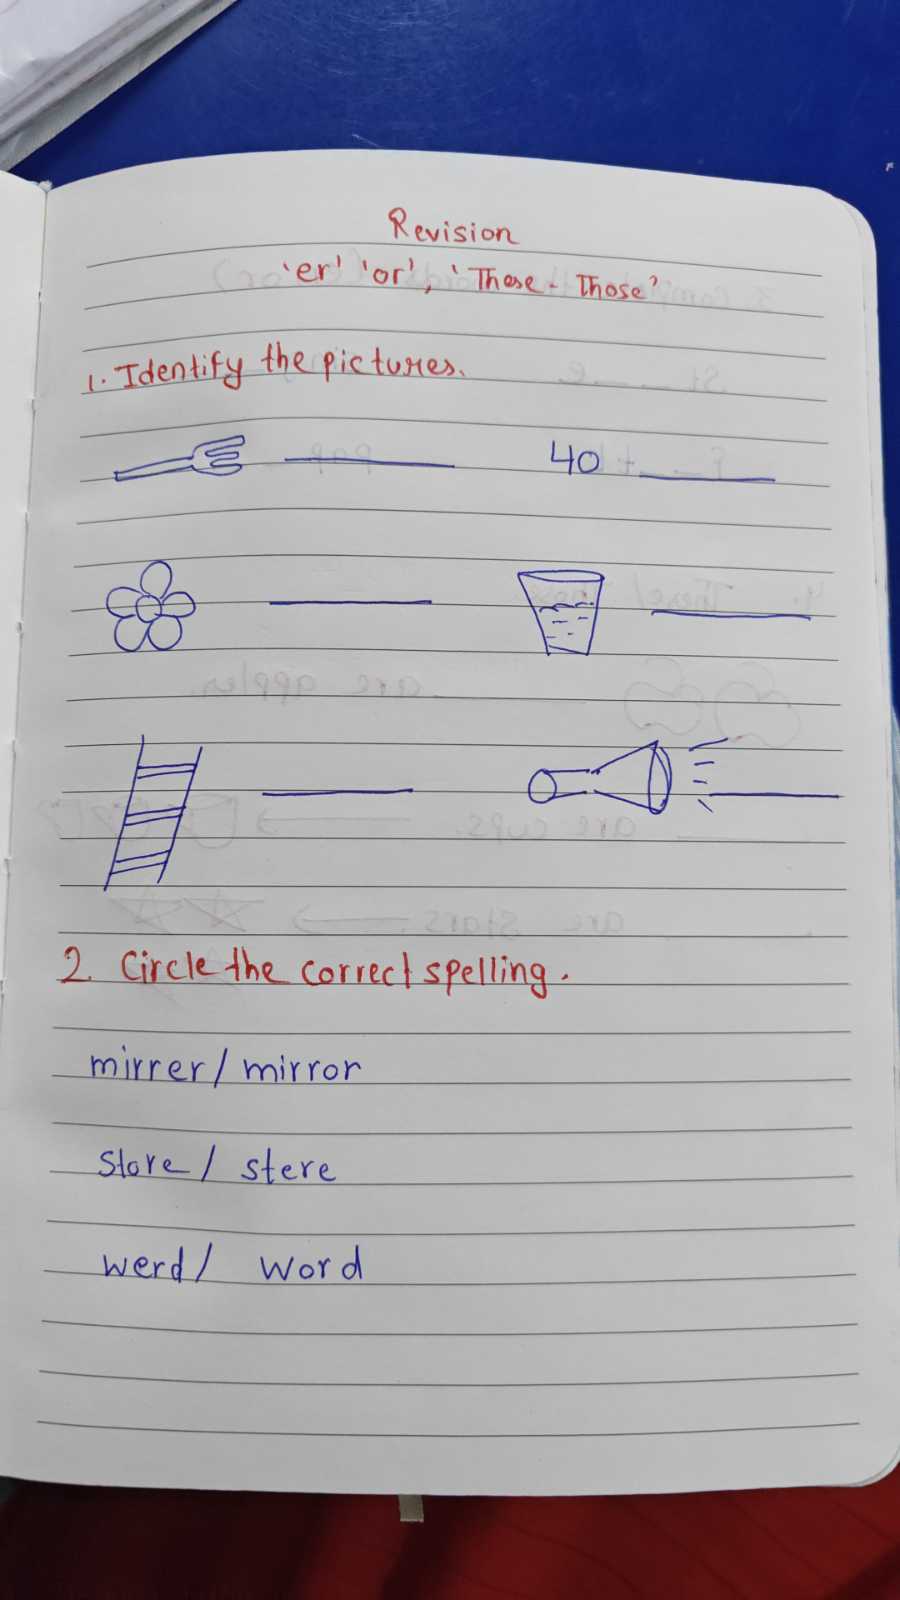 Revision
'er' 'or', 'These - Those'
1. Identify the pictures.
40
2. Circle the correct spelling.
mirrer / mirror
store / stere
werd / word